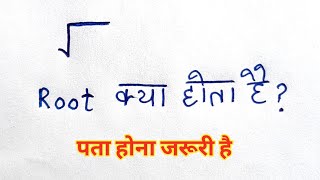 √
Root क्या होता है?
पता होना जरूरी है